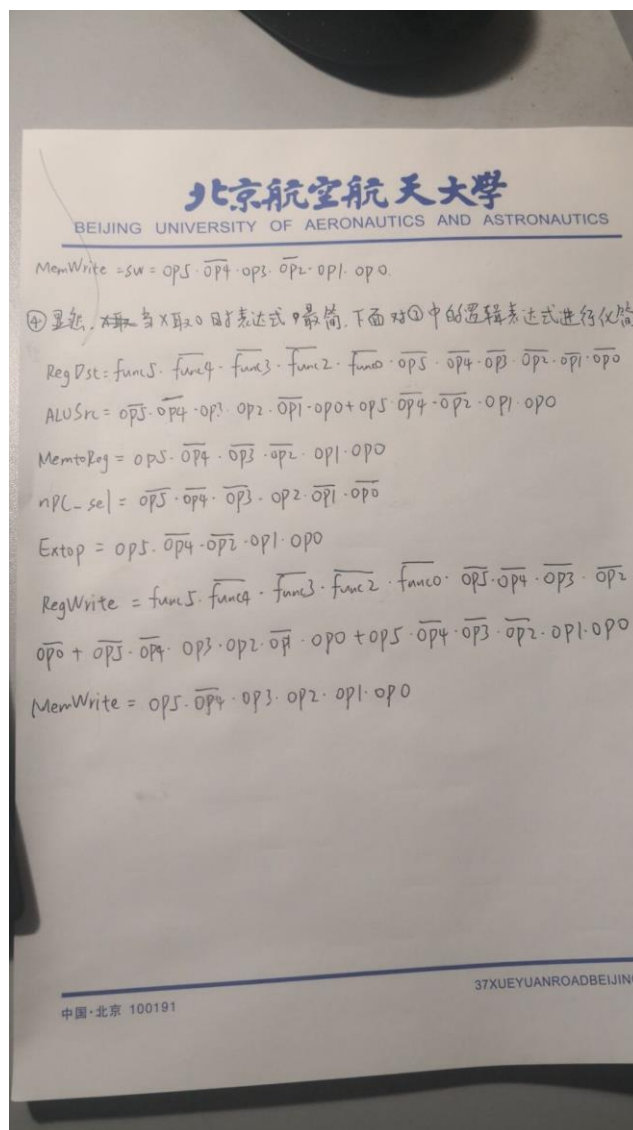 北京航空航天大學
BEIJING UNIVERSITY OF AERONAUTICS AND ASTRONAUTICS
MemWrite = sw = op5·o̅p̅4̅·op3·o̅p̅2̅·op1·op0.
④ 显然, 当X取0时表达式最简. 下面对③中的逻辑表达式进行化简
RegDst = func5·f̅u̅n̅c̅4̅·f̅u̅n̅c̅3̅·f̅u̅n̅c̅2̅·f̅u̅n̅c̅0̅·o̅p̅5̅·o̅p̅4̅·o̅p̅3̅·o̅p̅2̅·o̅p̅1̅·o̅p̅0̅
ALUSrc = o̅p̅5̅·o̅p̅4̅·op3·op2·o̅p̅1̅·op0+op5·o̅p̅4̅·o̅p̅2̅·op1·op0
MemtoReg = op5·o̅p̅4̅·o̅p̅3̅·o̅p̅2̅·op1·op0
nPC_sel = o̅p̅5̅·o̅p̅4̅·o̅p̅3̅·op2·o̅p̅1̅·o̅p̅0̅
Extop = op5·o̅p̅4̅·o̅p̅2̅·op1·op0
RegWrite = func5·f̅u̅n̅c̅4̅·f̅u̅n̅c̅3̅·f̅u̅n̅c̅2̅·f̅u̅n̅c̅0̅·o̅p̅5̅·o̅p̅4̅·o̅p̅3̅·o̅p̅2̅
o̅p̅0̅ + o̅p̅5̅·o̅p̅4̅·op3·op2·o̅p̅1̅·op0+op5·o̅p̅4̅·o̅p̅3̅·o̅p̅2̅·op1·op0
MemWrite = op5·o̅p̅4̅·op3·op2·op1·op0
37XUEYUANROADBEIJING
中国·北京 100191